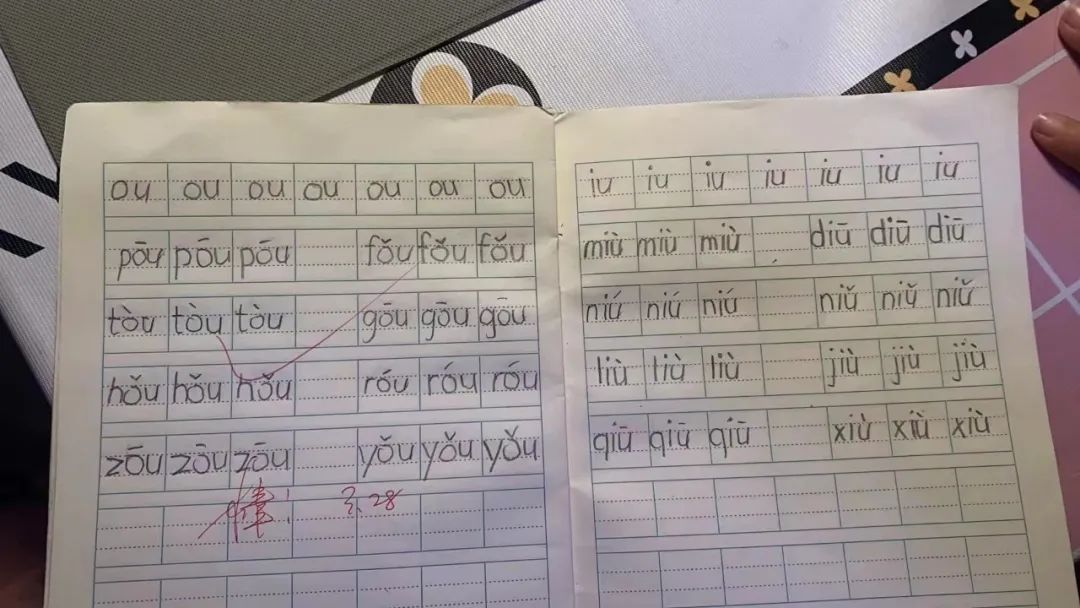 ou ou ou ou ou ou ou
pōu pōu pōu fǒu fǒu fǒu
tòu tòu tòu gōu gōu gōu
hǒu hǒu hǒu róu róu róu
zōu zōu zōu yǒu yǒu yǒu
棒! 3.28
iu iu iu iu iu iu iu
miù miù miù diū diū diū
niú niú niú niǔ niǔ niǔ
liù liù liù jiù jiù jiù
qiū qiū qiū xiù xiù xiù